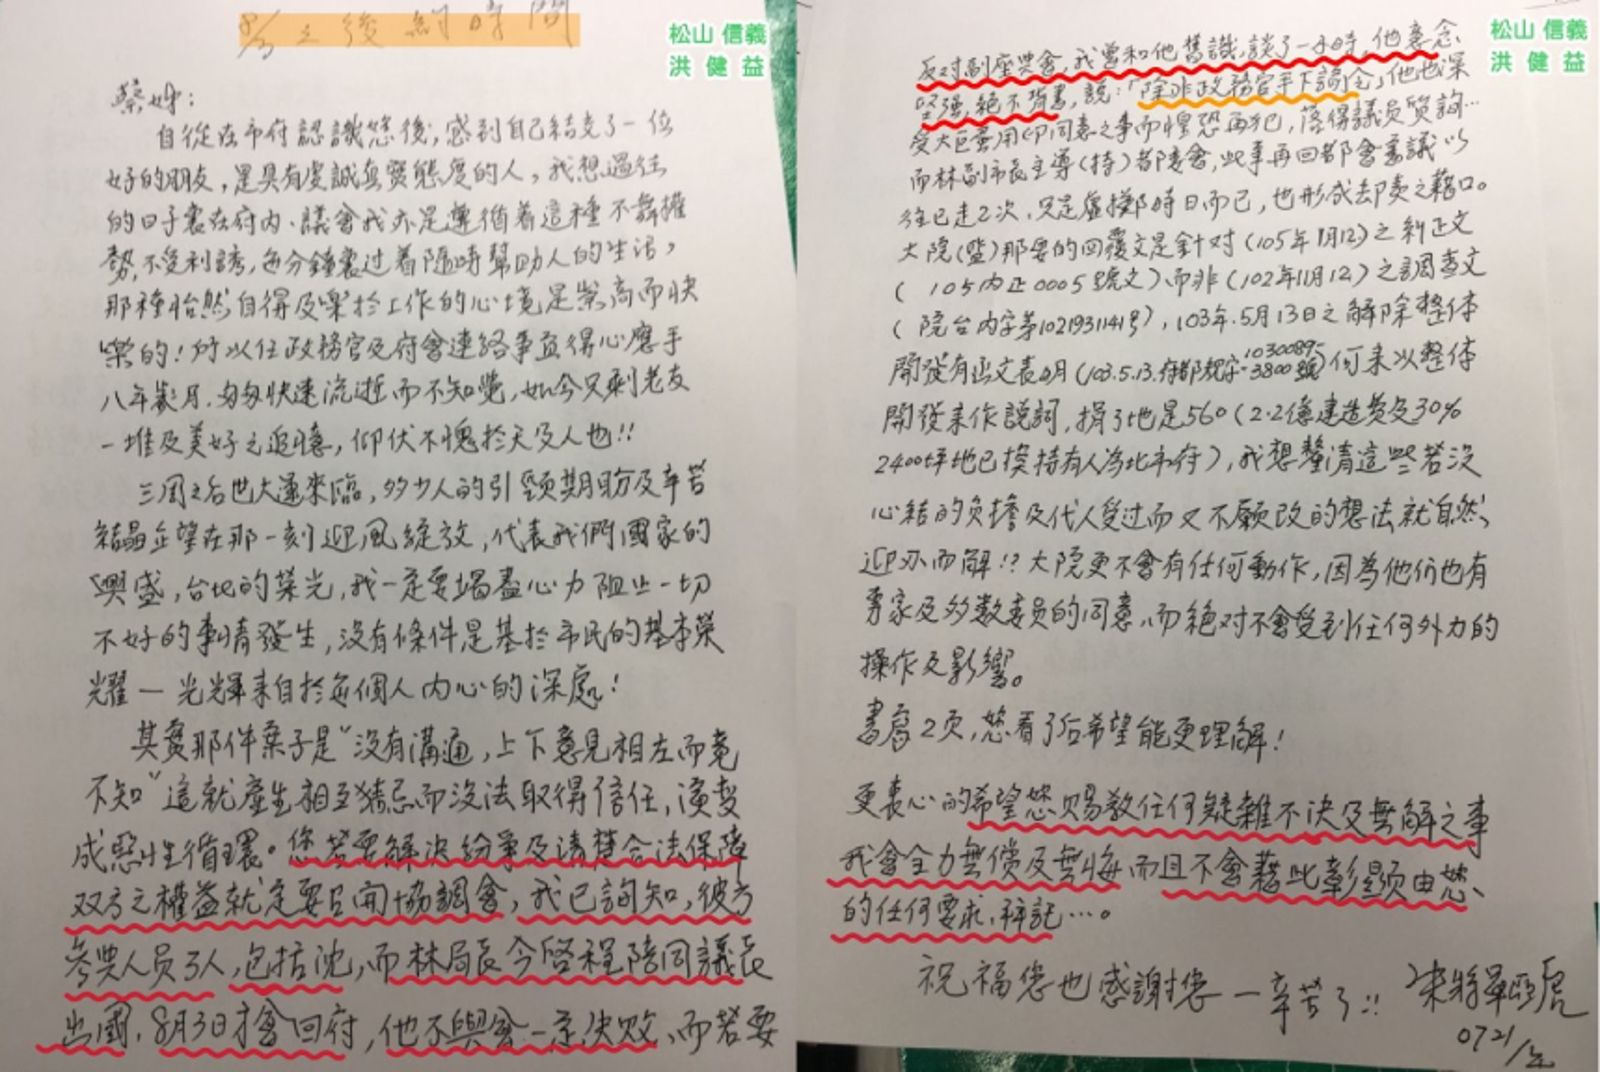 8/3之後約時間
松山 信義
洪 健 益
蔡姊：
自從在市府認識您後，感到自己結交了一位
好的朋友，是具有虔誠真實態度的人，我想過往
的日子裏在府內、議會我亦是遵循着這種不舞權
勢，不受利誘，每分鐘裏过着隨時幫助人的生活，
那種怡然自得及樂於工作的心境是崇高而快
樂的！所以任政務官及府會連絡事宜得心應手
八年歲月，匆匆快速流逝而不知覺，如今又剩老友
一堆及美好之追憶，仰伏不愧於天及人也!!
三周之后世大運來臨，多少人的引頸期盼及辛苦
結晶企望在那一刻迎風綻放，代表我們國家的
興盛，台北的榮光，我一定要竭盡心力阻止一切
不好的事情發生，沒有條件是基於市民的基本榮
耀－光輝來自於每個人內心的深處！
其實那件案子是"沒有溝通，上下意見相左而竟
不知"這就產生相互猜忌而沒法取得信任，演變
成惡性循環。您若要解決紛爭及清楚合法保障
双方之權益就定要召開協調會，我已詢知，彼方
參與人员3人，包括沈，而林局長今啓程陪同議長
出國，8月3日才會回府，他不與會一定失敗、而若要
松山 信義
洪 健 益
反对副座與會，我曾和他舊識，談了一小時，他意念
堅强，絕不背書，說：「除非政務官手下諭令」，他也深
受大巨蛋用印同意之事而惶恐再犯，落得議员質詢…
而林副市長主導(持)都委會，此事再回都會審議以
往已走2次，只是虛擲時日而已，也形成卸責之藉口。
大院(監)那要的回覆文是針对(105年1月12)之糾正文
(105內正0005號文)而非(102年11月12)之調查文
(院台內字第1021931141号)，103年.5月13日之解除整体
開發有函文表明(103.5.13.府都規字-1030089-3800號)何來以整体
開發來作說詞，捐3地是560(2.2億建造費及30%
2400坪地已換持有人為北市府)，我想釐清這些若沒
心結的负擔及代人受过而又不願改的想法就自然、
迎刃而解!?大院更不會有任何動作，因為他们也有
專家及多數委員的同意，而絕对不會受到任何外力的
操作及影響。
書寫2页，您看了后希望能更理解！
更衷心的希望您賜教任何疑難不決及無解之事
我會全力無償及無悔而且不會藉此彰顯由您、
的任何要求，拜託…。
祝福您也感謝您－辛苦了!!
0721/